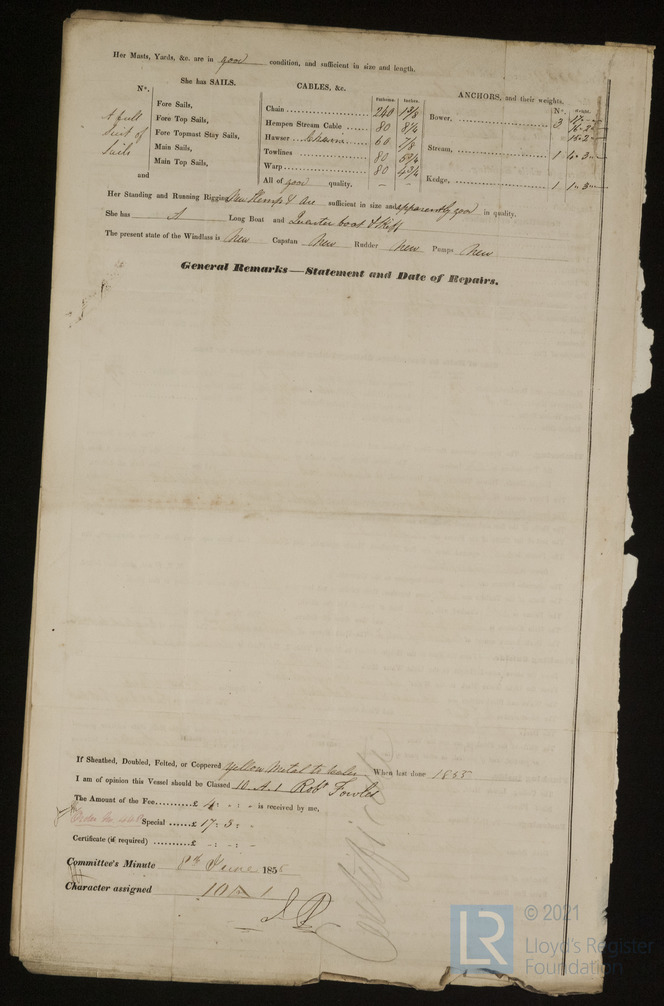 Her Masts, Yards, &c. are in good condition, and sufficient in size and length.
She has SAILS.
CABLES, &c.
ANCHORS, and their weights.
N°.
Fathoms
Inches.
N°.
Weight.
A full Suit of Sails
Fore Sails,
Fore Top Sails,
Fore Topmast Stay Sails,
Main Sails,
Main Top Sails,
and
Chain 240 1 3/8
Hempen Stream Cable 80 8 1/4
Hawser Chain 60 7/8
Towlines 80 5 3/4
Warp 80 4 3/4
All of good quality. – –
Bower, 3
Stream, 1 4 - 3 -
Kedge, 1 1 - 3 -
Her Standing and Running Rigging New Hemp & are sufficient in size and apparently good in quality.
She has A Long Boat and Quarter boat & Skiff
The present state of the Windlass is New Capstan New Rudder New Pumps New
General Remarks—Statement and Date of Repairs.
If Sheathed, Doubled, Felted, or Coppered Yellow Metal to Wales When last done 1855
I am of opinion this Vessel should be Classed 10 A 1 Robt Fowles
The Amount of the Fee £ 4 : - : - is received by me,
Special £ 17 : 3 : -
Certificate (if required) £ - : - : -
Committee's Minute 8th June 185
Character assigned 10 A 1
Certificate
© 2021
LR
Lloyd's Register
Foundation